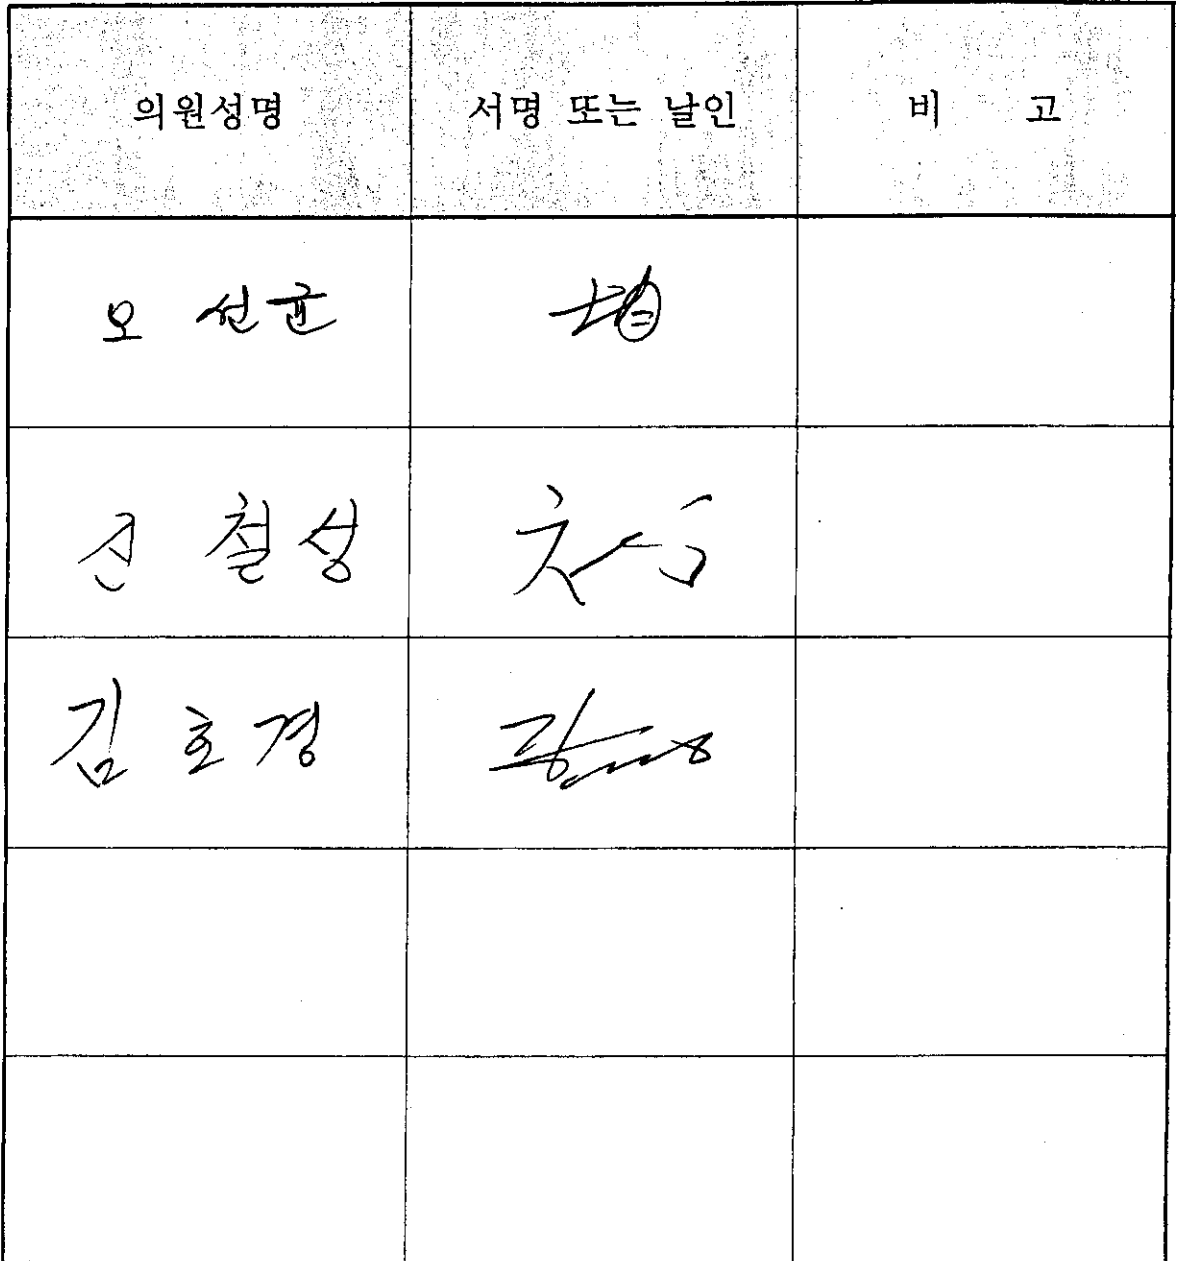 의원성명 서명 또는 날인 비 고
오 선균 均
신 철성
김 호경